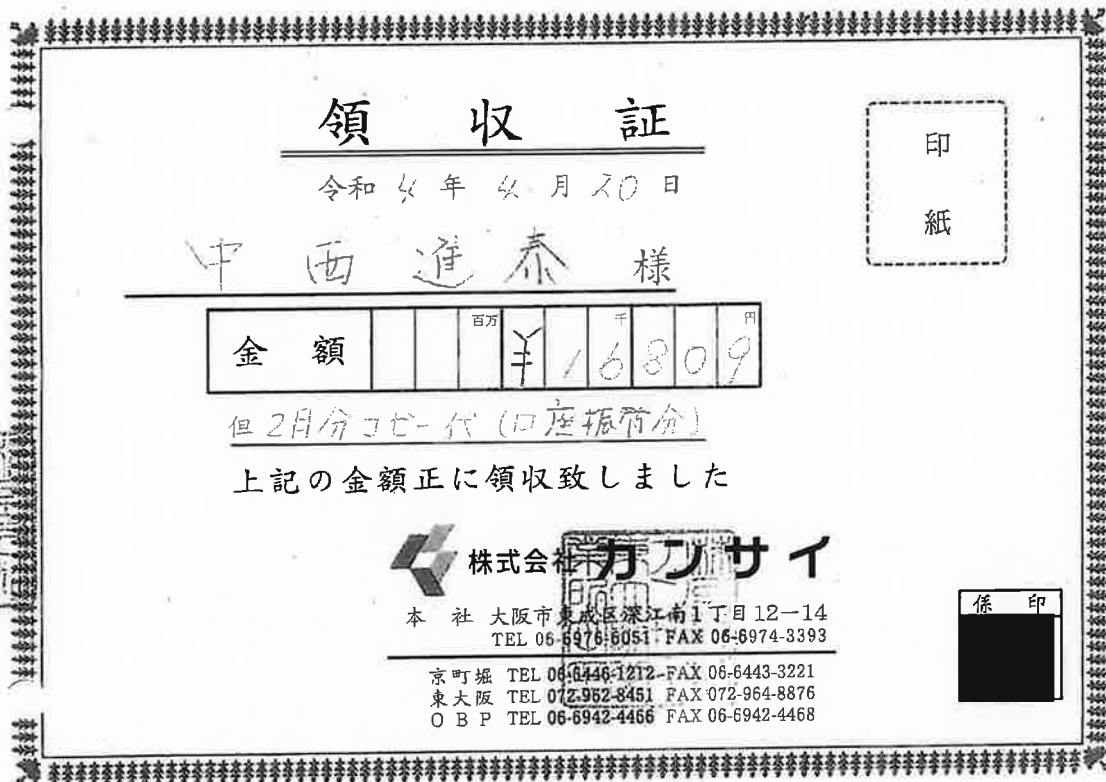 領収証
印紙
令和 4 年 4 月 20 日
中西進泰 様
金額 百万 千 円
¥16809
但 2月分コピー代(口座振替分)
上記の金額正に領収致しました
株式会社カンサイ
本社 大阪市東成区深江南1丁目12-14
TEL 06-6976-6051 FAX 06-6974-3393
京町堀 TEL 06-6446-1212 FAX 06-6443-3221
東大阪 TEL 072-962-8451 FAX 072-964-8876
OBP TEL 06-6942-4466 FAX 06-6942-4468
係印